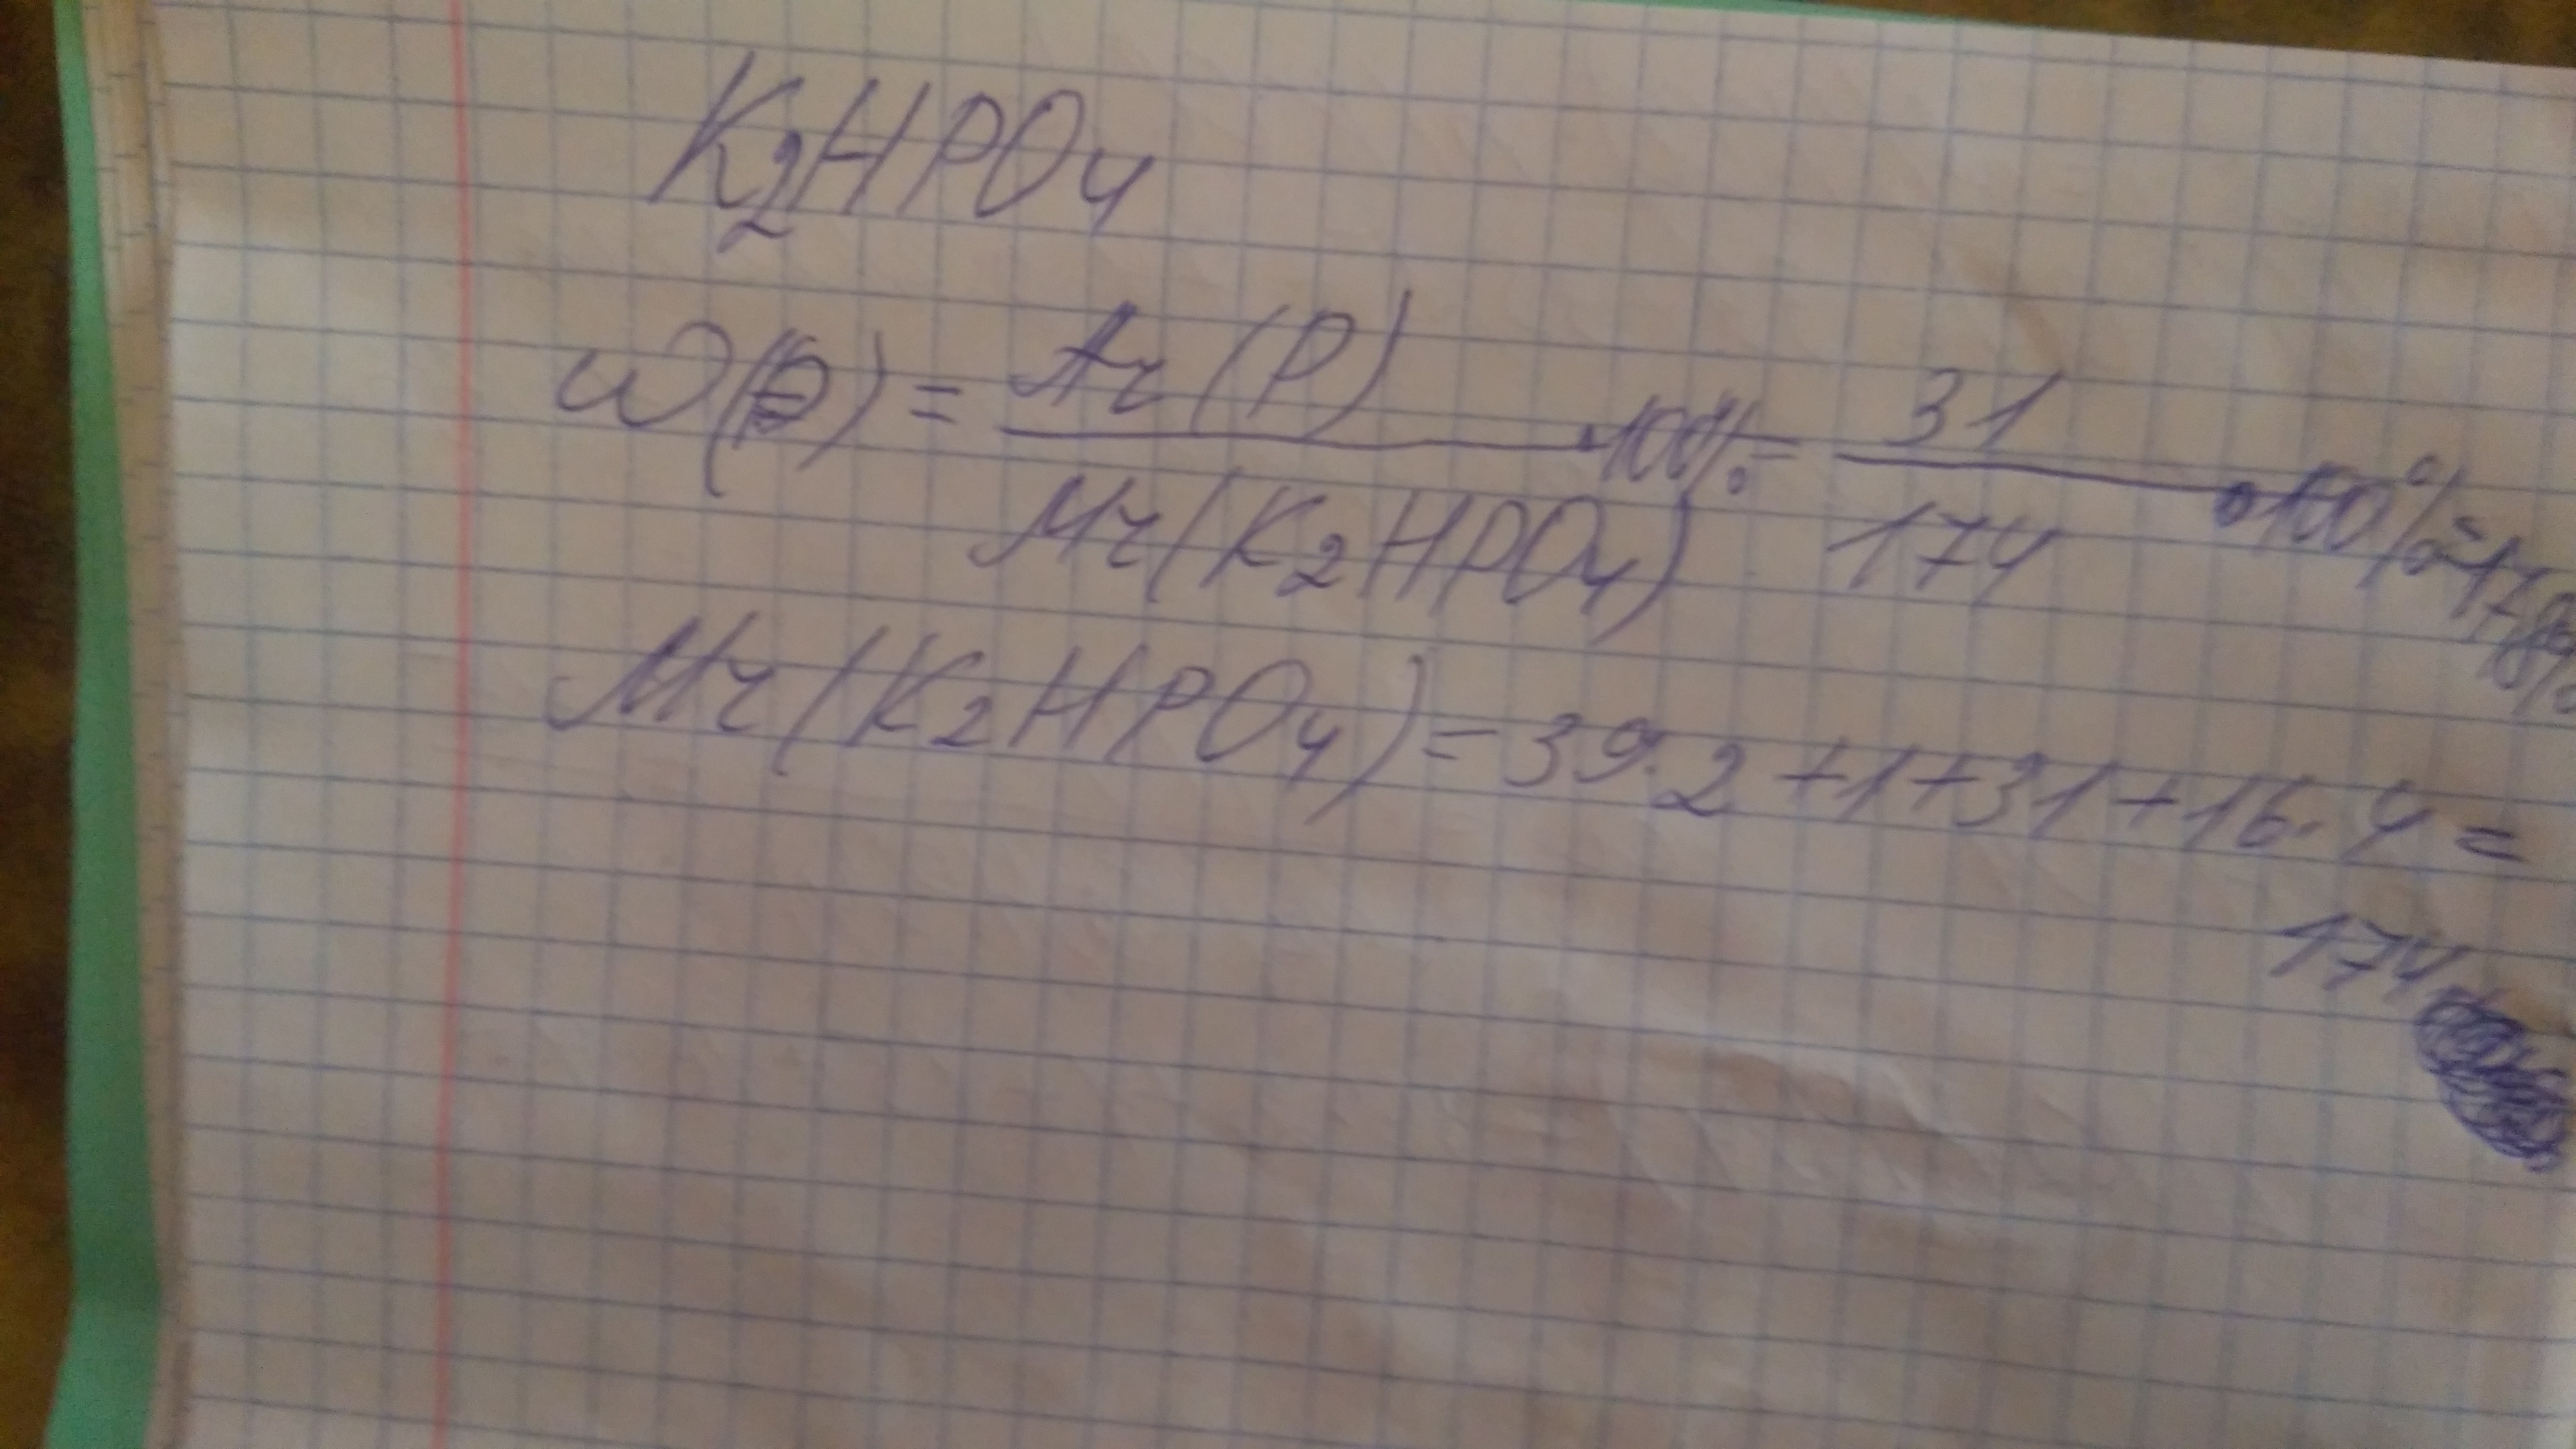 K2HPO4
W(P) = Ar(P) / Mr(K2HPO4) · 100% = 31 / 174 · 100% =
Mr(K2HPO4) = 39·2+1+31+16·4=
174